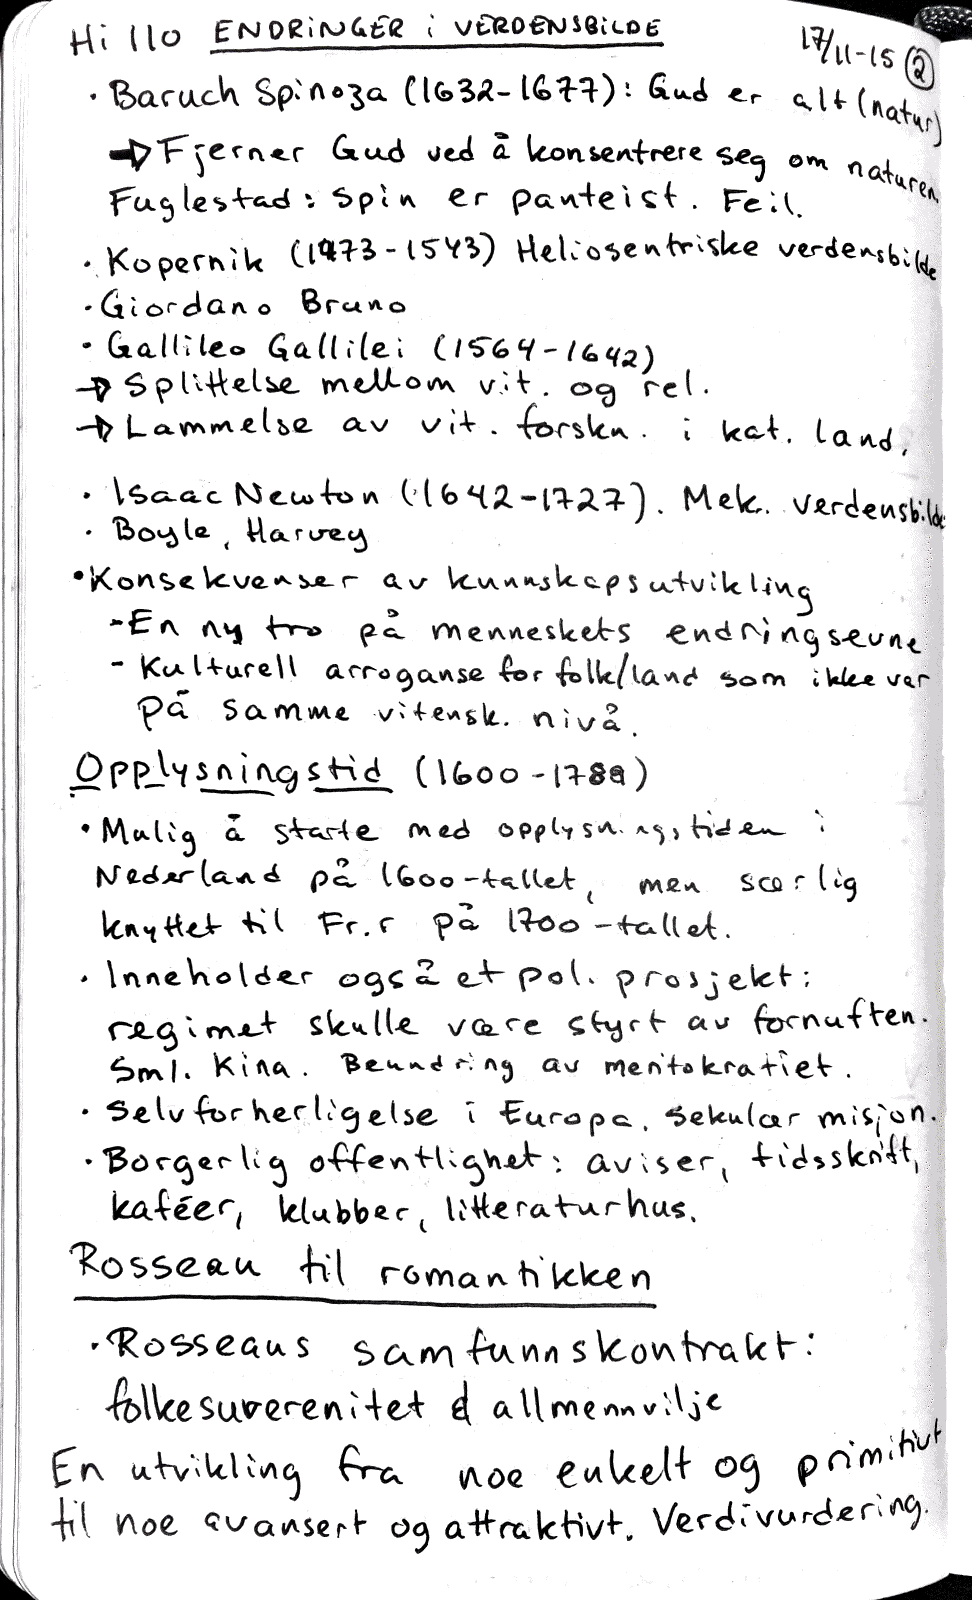 Hi 110 ENDRINGER i VERDENSBILDE
17/11-15 2
· Baruch Spinoza (1632-1677): Gud er alt (natur)
→ Fjerner Gud ved å konsentrere seg om naturen.
Fuglestad: Spin er panteist. Feil.
· Kopernik (1473-1543) Heliosentriske verdensbilde
· Giordano Bruno
· Gallileo Gallilei (1564-1642)
→ Splittelse mellom vit. og rel.
→ Lammelse av vit. forskn. i kat. land.
· Isaac Newton (1642-1727). Mek. verdensbilde
· Boyle, Harvey
· Konsekvenser av kunnskapsutvikling
- En ny tro på menneskets endringsevne
- Kulturell arroganse for folk/land som ikke var
på samme vitensk. nivå.
Opplysningstid (1600-1789)
· Mulig å starte med opplysningstiden i
Nederland på 1600-tallet, men særlig
knyttet til Fr.r på 1700-tallet.
· Inneholder også et pol. prosjekt:
regimet skulle være styrt av fornuften.
Sml. Kina. Beundring av meritokratiet.
· Selvforherligelse i Europa. Sekulær misjon.
· Borgerlig offentlighet: aviser, tidsskrift,
kaféer, klubber, litteraturhus.
Rosseau til romantikken
· Rosseaus samfunnskontrakt:
folkesuverenitet & allmennvilje
En utvikling fra noe enkelt og primitivt
til noe avansert og attraktivt. Verdivurdering.